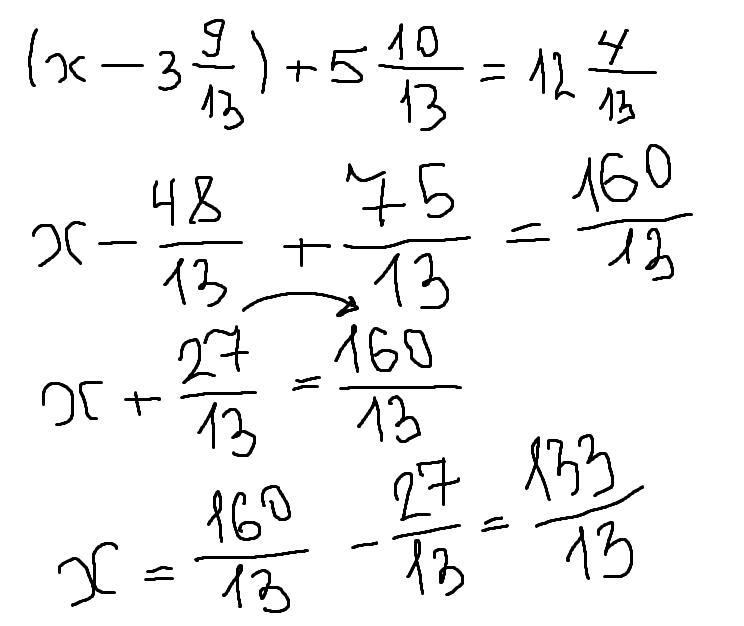 (x - 3 9/13) + 5 10/13 = 12 4/13
x - 48/13 + 75/13 = 160/13
x + 27/13 = 160/13
x = 160/13 - 27/13 = 133/13